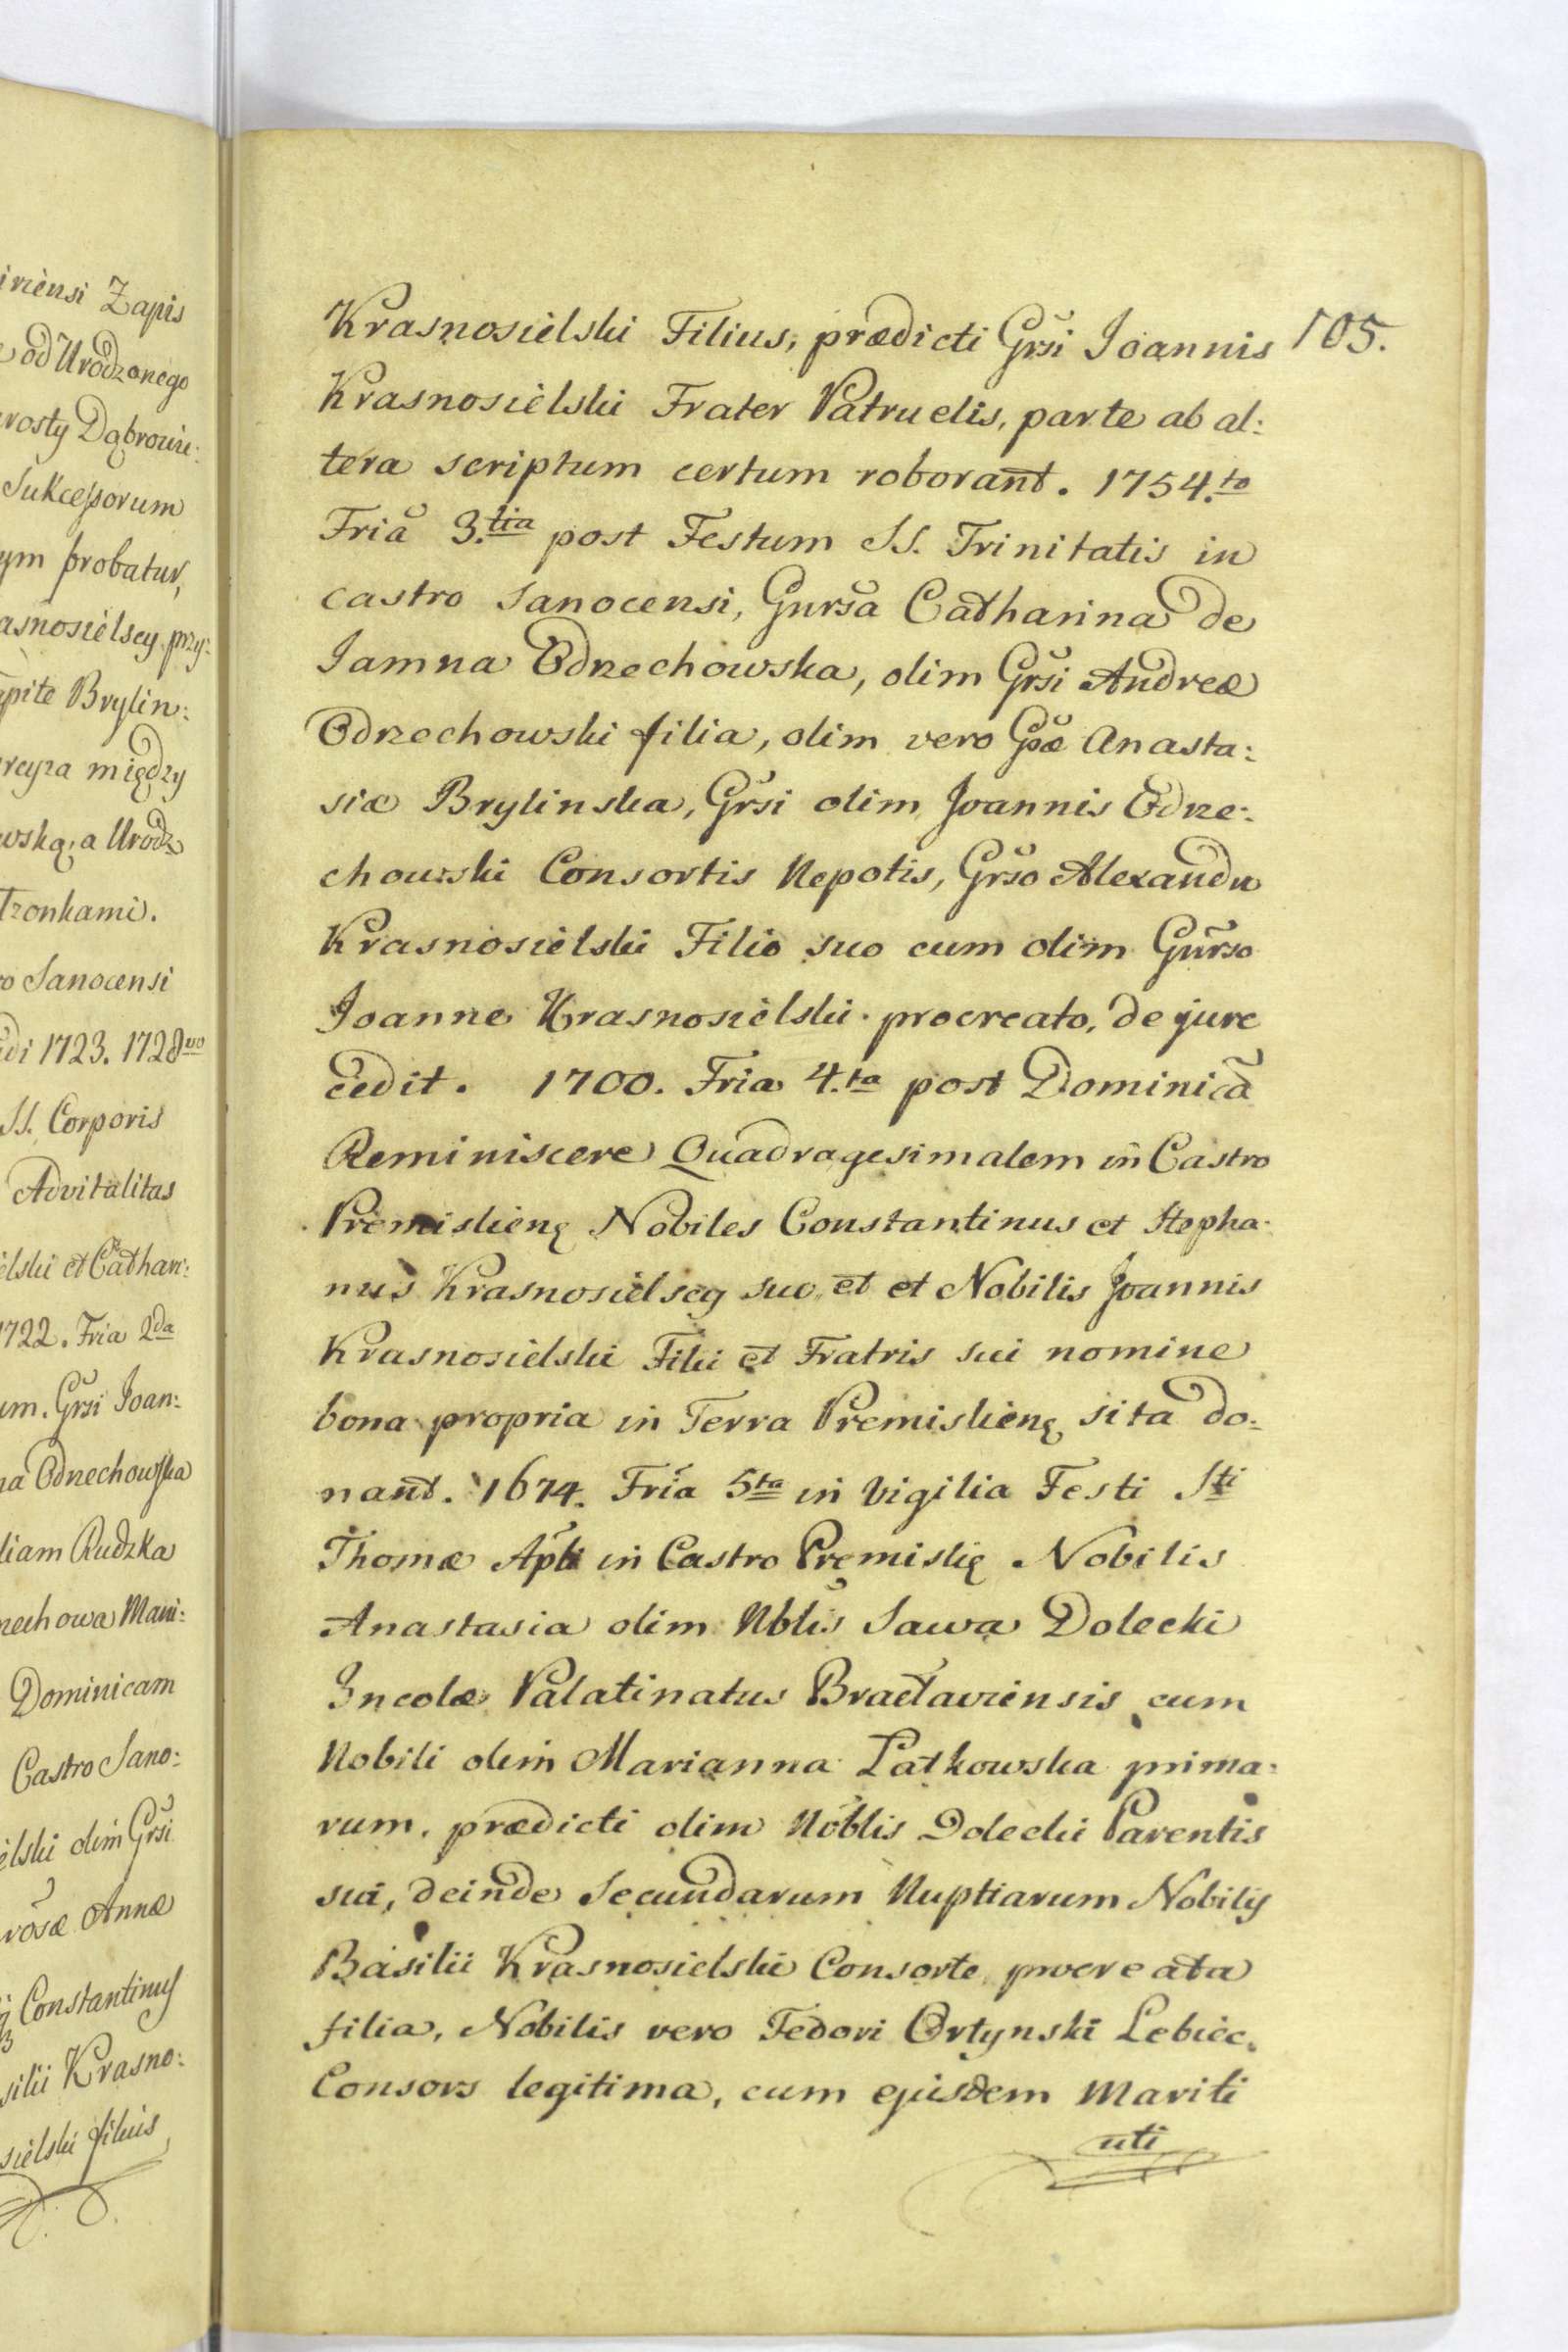 iriensi Zapis
e od Urodzonego
rosty Dąbrowie:
Sukcessorum
ym probatur,
asnosielscy, przy:
apite Brylin:
rcyza między
wską, a Urodz
Tzonkami.
o Sanocensi
di 1723. 1728vo
SS. Corporis
Advitalitas
ielski et Cathari:
1722. Fria 2da
um. Grsi Joan:
na Odrzechowska
liam Rudzka
rzechowa Mani:
Dominicam
Castro Sano:
ielski olim Grsi
rosæ Annæ
Constantinus
silii Krasno:
sielski filius
105.
Krasnosielski Filius, prædicti Grsi Joannis
Krasnosielski Frater Patruelis, parte ab al:
tera scriptum certum roborant. 1754.to
Fria 3.tia post Festum SS. Trinitatis in
castro Sanocensi, Gnrsa Catharina de
Jamna Odrzechowska, olim Grsi Andreæ
Odrzechowski filia, olim vero Gsæ Anasta:
siæ Brylinska, Grsi olim Joannis Odrze:
chowski Consortis Nepotis, Grso Alexandro
Krasnosielski Filio suo cum olim Gnrso
Joanne Krasnosielski procreato, de jure
cedit. 1700. Fria 4.ta post Dominicã
Reminiscere Quadragesimalem in Castro
Premislienę Nobiles Constantinus et Stepha:
nus Krasnosielscy suo et et Nobilis Joannis
Krasnosielski Filii et Fratris sui nomine
bona propria in Terra Premislienę sita do:
nant. 1674. Fria 5ta in Vigilia Festi Sti
Thomæ Apli in Castro Premislię Nobilis
Anastasia olim Nblis Sawa Dolecki
Incolæ Palatinatus Bracłaviensis cum
Nobili olim Marianna Łatkowska prima:
rum, prædicti olim Noblis Dolecki Parentis
sui, deinde Secundarum Nuptiarum Nobilis
Basilii Krasnosielski Consorte procreata
filia, Nobilis vero Fedori Ortynski Lebiec.
Consors legitima, cum ejusdem Mariti
uti